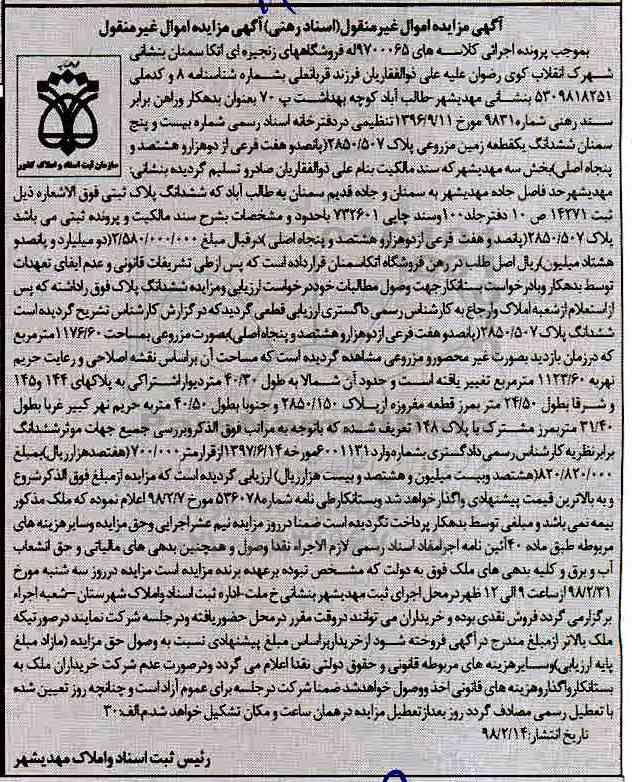 آگهی مزایده اموال غیرمنقول(اسناد رهنی)آگهی مزایده اموال غیرمنقول
بموجب پرونده اجرائی کلاسه های ۹۷۰۰۰۶۵له فروشگاههای زنجیره ای اتکا سمنان بنشانی
شهرک انقلاب کوی رضوان علیه علی ذوالفقاریان فرزند قربانعلی بشماره شناسنامه ۸ و کدملی
۵۳۰۹۸۱۸۲۵۱ بنشانی مهدیشهر طالب آباد کوچه بهداشت پ ۷۰ بعنوان بدهکار وراهن برابر
سند رهنی شماره ۹۸۳۱ مورخ ۱۳۹۶/۹/۱۱تنظیمی دردفترخانه اسناد رسمی شماره بیست و پنج
سمنان ششدانگ یکقطعه زمین مزروعی پلاک ۲۸۵۰/۵۰۷(پانصدو هفت فرعی از دوهزارو هشتصد و
پنجاه اصلی)بخش سه مهدیشهرکه سند مالکیت بنام علی ذوالفقاریان صادرو تسلیم گردیده بنشانی:
مهدیشهرحد فاصل جاده مهدیشهر به سمنان و جاده قدیم سمنان به طالب آباد که ششدانگ پلاک ثبتی فوق الاشعاره ذیل
ثبت ۱۴۲۷۱ ص ۱۰ دفترجلد۱۰۰وسند چاپی ۷۳۲۶۰۱ باحدود و مشخصات بشرح سند مالکیت و پرونده ثبتی می باشد
پلاک ۲۸۵۰/۵۰۷(پانصد و هفت فرعی ازدوهزارو هشتصد و پنجاه اصلی )درقبال مبلغ ۲/۵۸۰/۰۰۰/۰۰۰(دو میلیارد و پانصدو
هشتاد میلیون)ریال اصل طلب در رهن فروشگاه اتکاسمنان قرارداده است که پس ازطی تشریفات قانونی و عدم ایفای تعهدات
توسط بدهکار وبادرخواست بستانکارجهت وصول مطالبات خوددرخواست ارزیابی ومزایده ششدانگ پلاک فوق راداشته که پس
ازاستعلام ازشعبه املاک وارجاع به کارشناس رسمی دادگستری ارزیابی قطعی گردیدکه درگزارش کارشناس تشریح گردیده است
ششدانگ پلاک ۲۸۵۰/۵۰۷(پانصدو هفت فرعی ازدوهزارو هشتصدو پنجاه اصلی)بصورت مزروعی بمساحت ۱۱۷۶/۶۰مترمربع
که درزمان بازدید بصورت غیر محصورو مزروعی مشاهده گردیده است که مساحت آن براساس نقشه اصلاحی و رعایت حریم
نهربه ۱۱۲۳/۶۰ مترمربع تغییر یافته است و حدود آن شمالا به طول ۴۰/۳۰ متردیواراشتراکی به پلاکهای ۱۴۴ و۱۴۵
و شرقا بطول ۲۴/۵۰ متر بمرز قطعه مفروزه ازپلاک ۲۸۵۰/۱۵۰ و جنوبا بطول ۴۰/۵۰ متربه حریم نهر کبیر غربا بطول
۳۱/۴۰ متربمرز مشترک با پلاک ۱۴۸ تعریف شده که باتوجه به مراتب فوق الذکروبررسی جمیع جهات موثرششدانگ
برابرنظریه کارشناس رسمی دادگستری بشماره وارد ۶۰۰۱۱۳۱مورخه ۱۳۹۷/۶/۱۴ازقرارمتر۷۰۰/۰۰۰(هفتصدهزارریال)بمبلغ
۸۲۰/۸۲۰/۰۰۰(هشتصد وبیست میلیون و هشتصد و بیست هزارریال) ارزیابی گردیده است که مزایده ازمبلغ فوق الذکرشروع
و به بالاترین قیمت پیشنهادی واگذار خواهد شد وبستانکارطی نامه شماره ۵۳۶۰۷۸ مورخ ۹۸/۲/۷ اعلام نموده که ملک مذکور
بیمه نمی باشد و مبلغی توسط بدهکار پرداخت نگردیده است ضمنا درروز مزایده نیم عشراجرایی وحق مزایده وسایر هزینه های
مربوطه طبق ماده ۴۰آئین نامه اجرامفاد اسناد رسمی لازم الاجراء نقدا وصول و همچنین بدهی های مالیاتی و حق انشعاب
آب و برق و کلیه بدهی های ملک فوق به دولت که مشخص نبوده برعهده برنده مزایده است مزایده درروز سه شنبه مورخ
۹۸/۲/۳۱ ازساعت ۹ الی ۱۲ ظهر درمحل اجرای ثبت مهدیشهر بنشانی خ ملت-اداره ثبت اسنادواملاک شهرستان –شعبه اجراء
برگزارمی گردد فروش نقدی بوده و خریداران می توانند دروقت مقرر درمحل حضوریافته ودرجلسه شرکت نمایند درصورتیکه
ملک بالاتر ازمبلغ مندرج درآگهی فروخته شود ازخریداربراساس مبلغ پیشنهادی نسبت به وصول حق مزایده (مازاد مبلغ
پایه ارزیابی)وسایرهزینه های مربوطه قانونی و حقوق دولتی نقدا اعلام می گردد ودرصورت عدم شرکت خریداران ملک به
بستانکارواگذاروهزینه های قانونی اخذ ووصول خواهدشد ضمنا شرکت درجلسه برای عموم آزاد است و چنانچه روز تعیین شده
با تعطیل رسمی مصادف گردد روز بعدازتعطیل مزایده درهمان ساعت و مکان تشکیل خواهد شد.م.الف:۳۰
تاریخ انتشار:۹۸/۲/۱۴
رئیس ثبت اسناد واملاک مهدیشهر
سازمان ثبت اسناد و املاک کشور